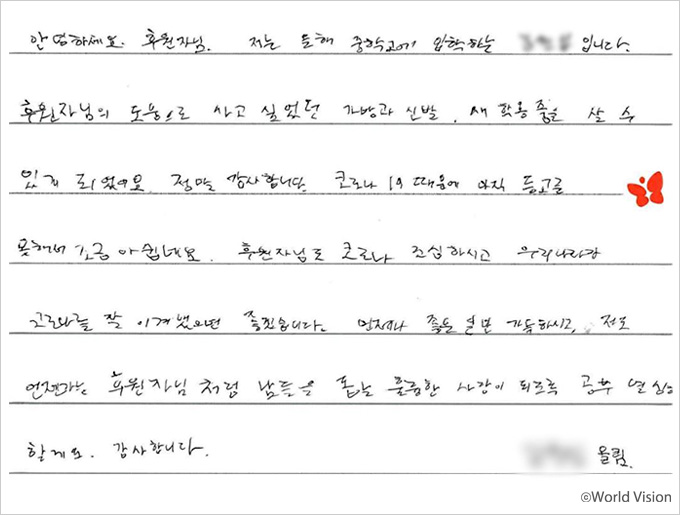 안녕하세요. 후원자님. 저는 올해 중학교에 입학하는 입니다.
후원자님의 도움으로 사고 싶었던 가방과 신발, 새 학용품을 살 수
있게 되었어요. 정말 감사합니다. 코로나 19 때문에 아직 등교를
못해서 조금 아쉽네요. 후원자님도 코로나 조심하시고 우리나라가
코로나를 잘 이겨냈으면 좋겠습니다. 언제나 좋은 일만 가득하시고, 저도
언젠가는 후원자님처럼 남들을 돕는 훌륭한 사람이 되도록 공부 열심히
할게요. 감사합니다. 올림.
©World Vision